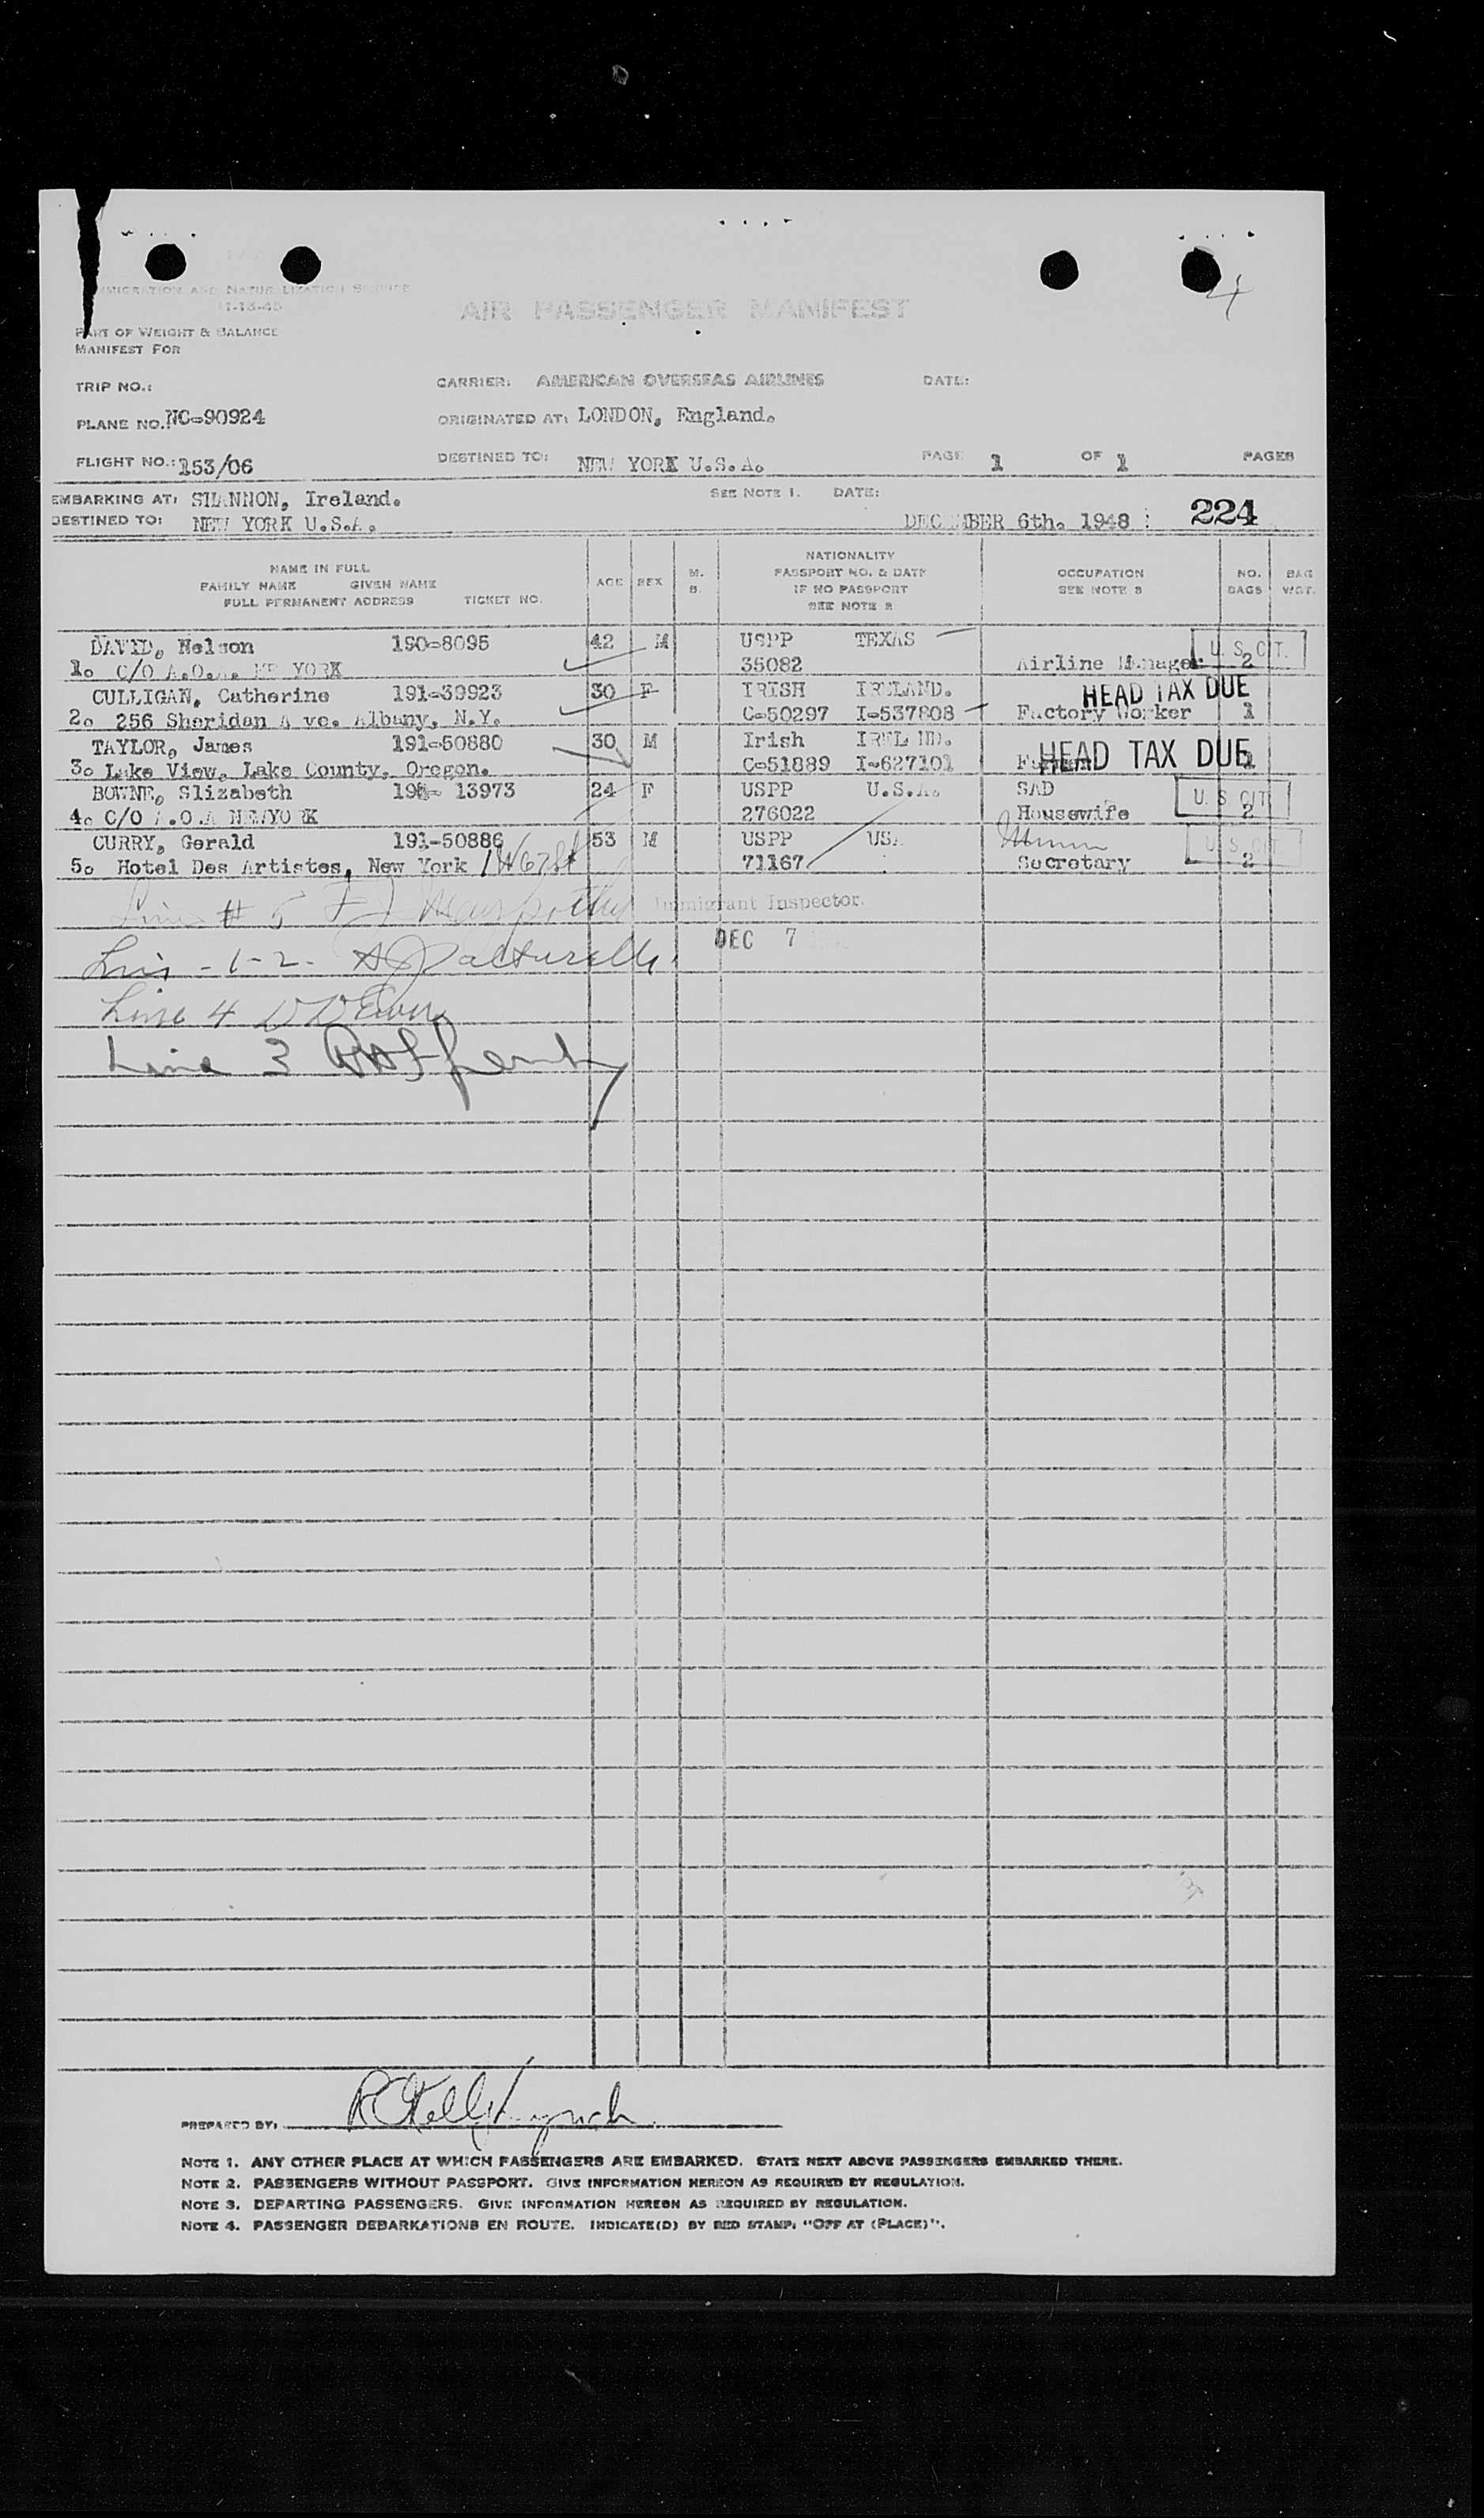 4
IMMIGRATION AND NATURALIZATION SERVICE
11-13-45
AIR PASSENGER MANIFEST
PART OF WEIGHT & BALANCE
MANIFEST FOR
TRIP NO.: CARRIER: AMERICAN OVERSEAS AIRLINES DATE:
PLANE NO.: NC-90924 ORIGINATED AT: LONDON, England.
FLIGHT NO.: 153/06 DESTINED TO: NEW YORK U.S.A. PAGE 1 OF 1 PAGES
EMBARKING AT: SHANNON, Ireland. SEE NOTE 1. DATE:
DESTINED TO: NEW YORK U.S.A. DECEMBER 6th. 1948 : 224
NAME IN FULL
FAMILY NAME GIVEN NAME
FULL PERMANENT ADDRESS TICKET NO. AGE SEX M. B. NATIONALITY
PASSPORT NO. & DATE
IF NO PASSPORT
SEE NOTE 2 OCCUPATION
SEE NOTE 3 NO. BAGS BAG WGT.
DAVID, Nelson 190-8095 42 M USPP TEXAS U. S. CIT.
1. C/O A.O.A. NEW YORK 35082 Airline Manager 2
CULLIGAN, Catherine 191-39923 30 F IRISH IRELAND. HEAD TAX DUE
2. 256 Sheridan A ve. Albany, N.Y. C-50297 I-537808 Factory Worker 1
TAYLOR, James 191-50880 30 M Irish IRELAND. HEAD TAX DUE
3. Lake View, Lake County, Oregon. C-51889 I-627101 1
BOWNE, Slizabeth 13973 24 F USPP U.S.A. SAD U. S. CIT.
4. C/O A.O.A NEWYORK 276022 Housewife 2
CURRY, Gerald 191-50886 53 M USPP USA U. S. CIT.
5. Hotel Des Artistes, New York 1 W 67 St 71167 Secretary 2
Line # 5 Immigrant Inspector.
DEC 7
Line - 1-2-
Line 4
Line 3
PREPARED BY:
NOTE 1. ANY OTHER PLACE AT WHICH PASSENGERS ARE EMBARKED. STATE NEXT ABOVE PASSENGERS EMBARKED THERE.
NOTE 2. PASSENGERS WITHOUT PASSPORT. GIVE INFORMATION HEREON AS REQUIRED BY REGULATION.
NOTE 3. DEPARTING PASSENGERS. GIVE INFORMATION HEREON AS REQUIRED BY REGULATION.
NOTE 4. PASSENGER DEBARKATIONS EN ROUTE. INDICATE(D) BY RED STAMP: "OFF AT (PLACE)".